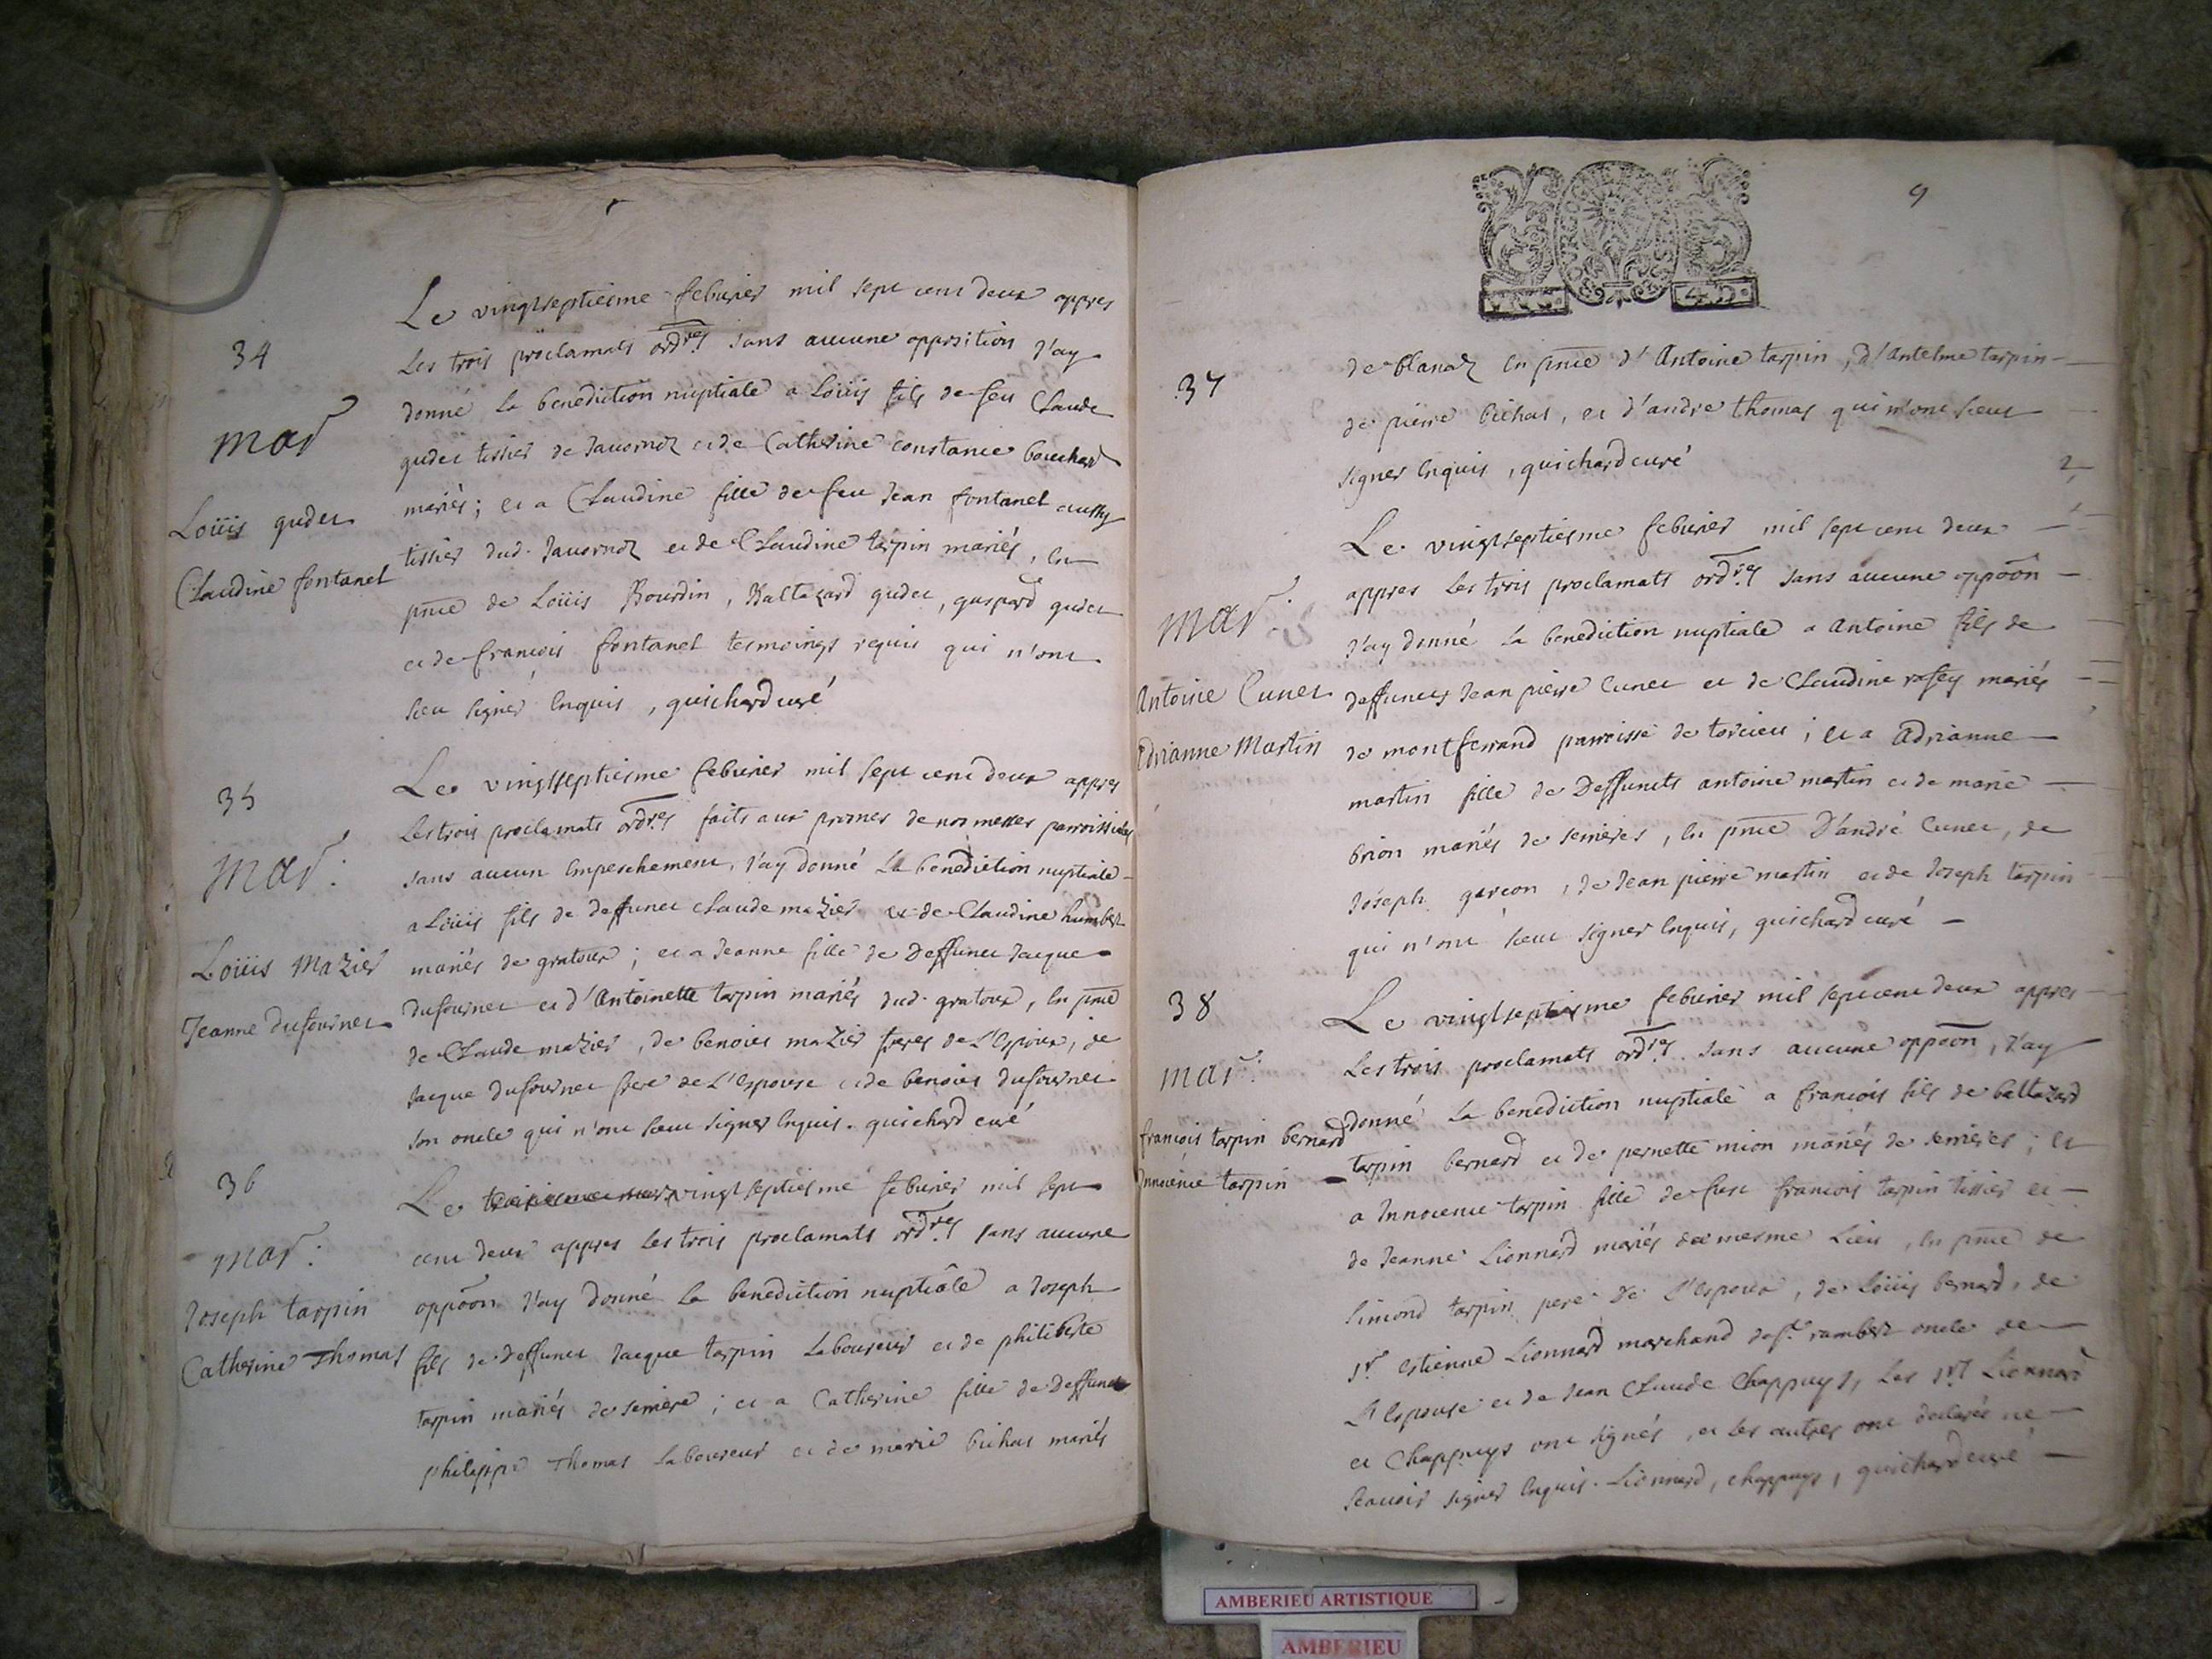 34
mar
Loüis gudet
Claudine fontanet
Le vingtseptiesme feburier mil sept cent deux appres
Les trois proclamats ordres sans aucune opposition J'ay
donné la benediction nuptiale a Loüis fils de feu Claude
gudet tissier de Jauornoz et de Catherine constance bouchard
mariés; et a Claudine fille de feu Jean fontanet aussy
tissier dud. Jauornoz et de Claudine tarpin mariés, en
pnce de Loüis Bourdin, Baltazard gudet, gaspard gudet
et de francois fontanet tesmoings requis qui n'ont
sceu signer enquis, guichard curé
35
mar.
Loüis Mazier
Jeanne dufournet
Le vingtseptiesme feburier mil sept cent deux appres
Les trois proclamats ordres faits aux prosnes de nos messes parroissiales
sans aucun empeschement, J'ay donné La benediction nuptiale
a Loüis fils de deffunct Claude mazier et de Claudine humbert
mariés de gratoux; et a Jeanne fille de Deffunct Jacque
dufournet et d'Antoinette tarpin mariés dud. gratoux, En pnce
de Claude mazier, de benoict mazier freres de L'Espoux, de
Jacque dufournet frere de L'espouse et de benoict dufournet
son oncle qui n'ont sceu signer enquis. guichard curé
36
mar:
Joseph tarpin
Catherine Thomas
Le vingtseptiesme feburier mil sept
cent deux appres les trois proclamats ordres sans aucune
oppoôn J'ay donné la benediction nuptiale a Joseph
fils de deffunct Jacque tarpin Laboureur et de philiberte
tarpin mariés de seniere; et a Catherine fille de deffunct
philippe Thomas Laboureur et de marie bichat mariés
9
37
de blanaz en pnce d'Antoine tarpin, d'Antelme tarpin
de pierre bichat, et d'andre thomas qui n'ont sceu
signer enquis, guichard curé
mar.
Antoine Cunet
Adrianne Martin
Le vingtseptiesme feburier mil sept cent deux
appres les trois proclamats ordres sans aucune oppoôn
J'ay donné La benediction nuptiale a Antoine fils de
deffuncts Jean pierre Cunet et de Claudine rosey mariés
de montferrand parroisse de torcieu; et a Adrianne
martin fille de Deffuncts antoine martin et de marie
brion mariés de senieres, en pnce D'andré Cunet, de
Joseph garcon, de Jean pierre martin et de Joseph tarpin
qui n'ont sceu signer enquis, guichard curé
38
mar:
francois tarpin bernard
Innocence tarpin
Le vingtseptiesme feburier mil sept cent deux appres
Les trois proclamats ordres sans aucune oppoôn, J'ay
donné La benediction nuptiale a francois fils de baltazard
tarpin bernard et de pernette mion mariés de senieres; et
a Innocence tarpin fille de fust francois tarpin tissier et
de Jeanne Lionnard mariés du mesme Lieu, en pnce de
simond tarpin pere de L'espoux, de Loüis bernard, de
sr. estienne Lionnard marchand de st. rambert oncle de
L'espouse et de Jean Claude Chappuys, Les srs Lionnard
et Chappuys ont signés, et les autres ont declarés ne
scauoir signer enquis. Lionnard, chappuys, guichard curé
AMBERIEU ARTISTIQUE
AMBERIEU